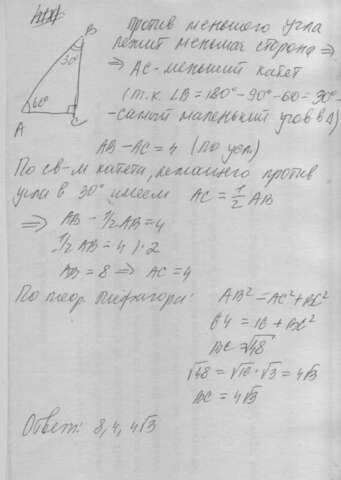 B
30°
60°
A
C
против меньшего угла
лежит меньшая сторона ⇒
⇒ AC - меньший катет
(т.к. ∠B = 180° - 90° - 60 = 30° -
- самый маленький угол в Δ)
AB - AC = 4 (по усл)
По св-м катета, лежащего против
угла в 30° имеем AC = 1/2 AB
⇒ AB - 1/2 AB = 4
1/2 AB = 4 |·2
AB = 8 ⇒ AC = 4
По теор. Пифагора: AB² = AC² + BC²
64 = 16 + BC²
BC = √48
√48 = √16 · √3 = 4√3
BC = 4√3
Ответ: 8, 4, 4√3